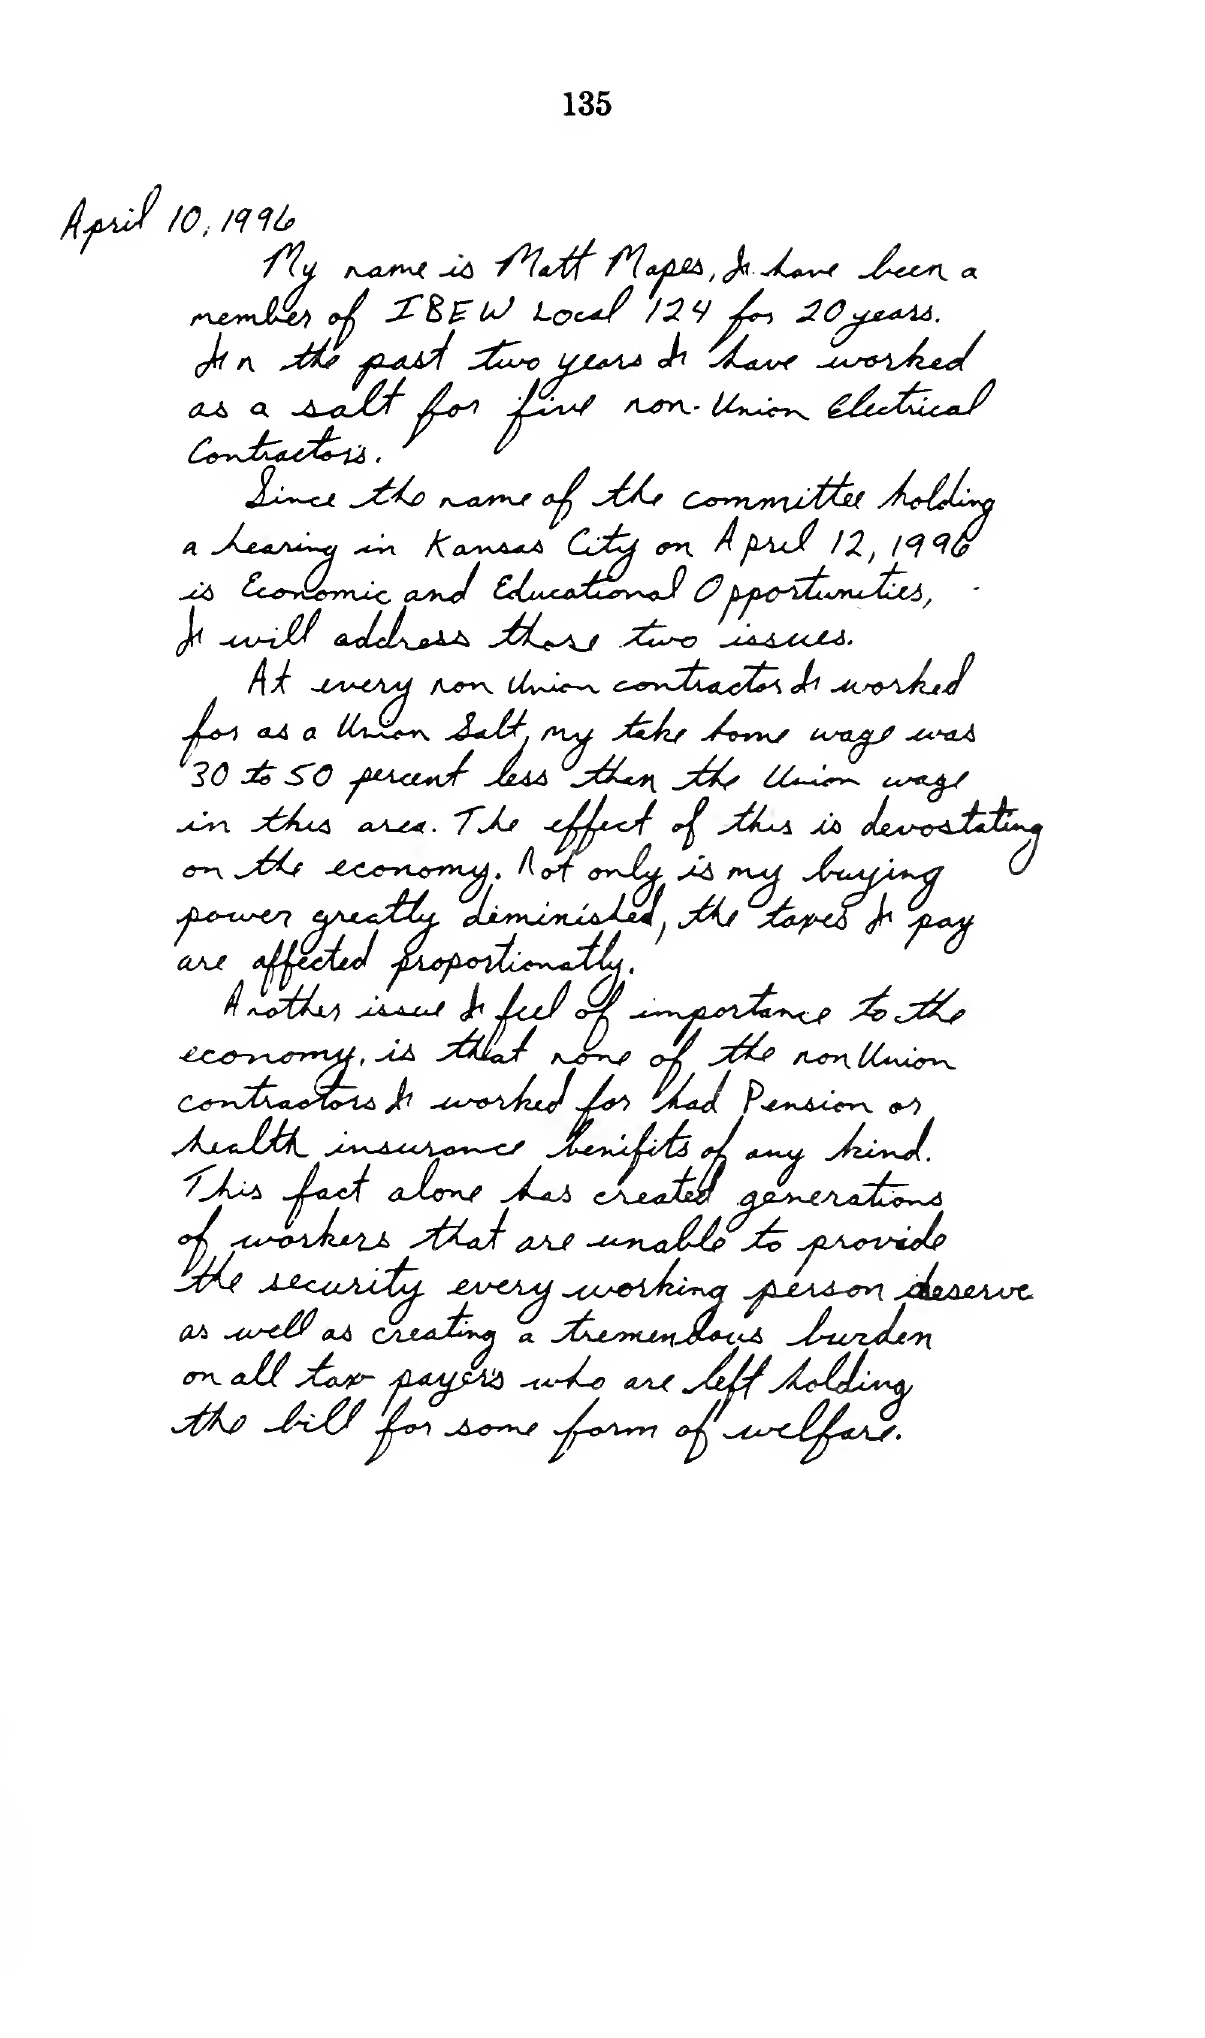 135
April 10, 1996
My name is Matt Mapes, I have been a
member of IBEW Local 124 for 20 years.
In the past two years I have worked
as a salt for five non-Union Electrical
Contractors.
Since the name of the committee holding
a hearing in Kansas City on April 12, 1996
is Economic and Educational Opportunities,
I will address those two issues.
At every non Union contractor I worked
for as a Union Salt, my take home wage was
30 to 50 percent less than the Union wage
in this area. The effect of this is devostating
on the economy. Not only is my buying
power greatly diminished, the taxes I pay
are affected proportionatly.
Another issue I feel of importance to the
economy, is that none of the non Union
contractors I worked for had Pension or
health insurance benifits of any kind.
This fact alone has created generations
of workers that are unable to provide
the security every working person deserve
as well as creating a tremendous burden
on all tax payers who are left holding
the bill for some form of welfare.